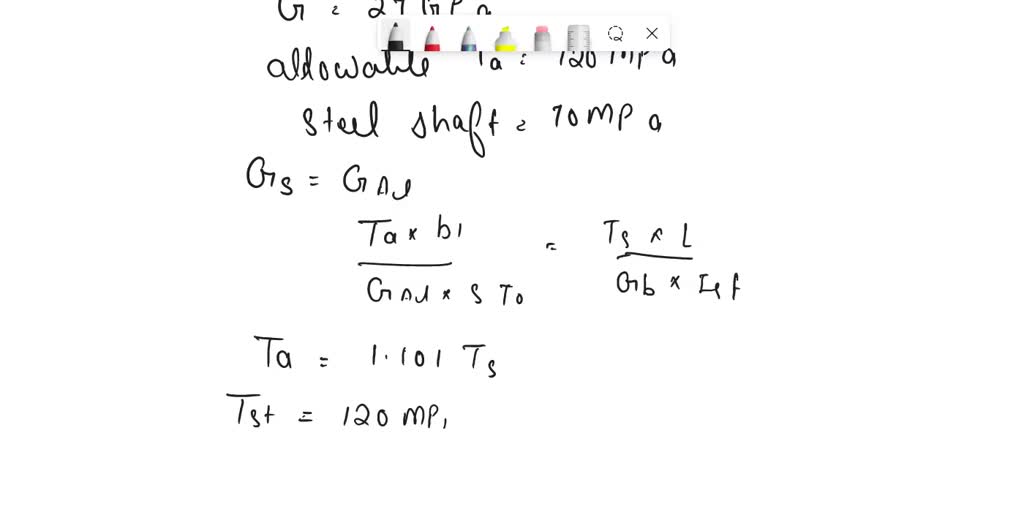 G = 27 GPa
allowable Ta = 120 MPa
Steel shaft = 70 MPa
Gs = GAl
Ta × b1 = Ts × L
GAl × S To Gb ×
Ta = 1.101 Ts
Tst = 120 MP,